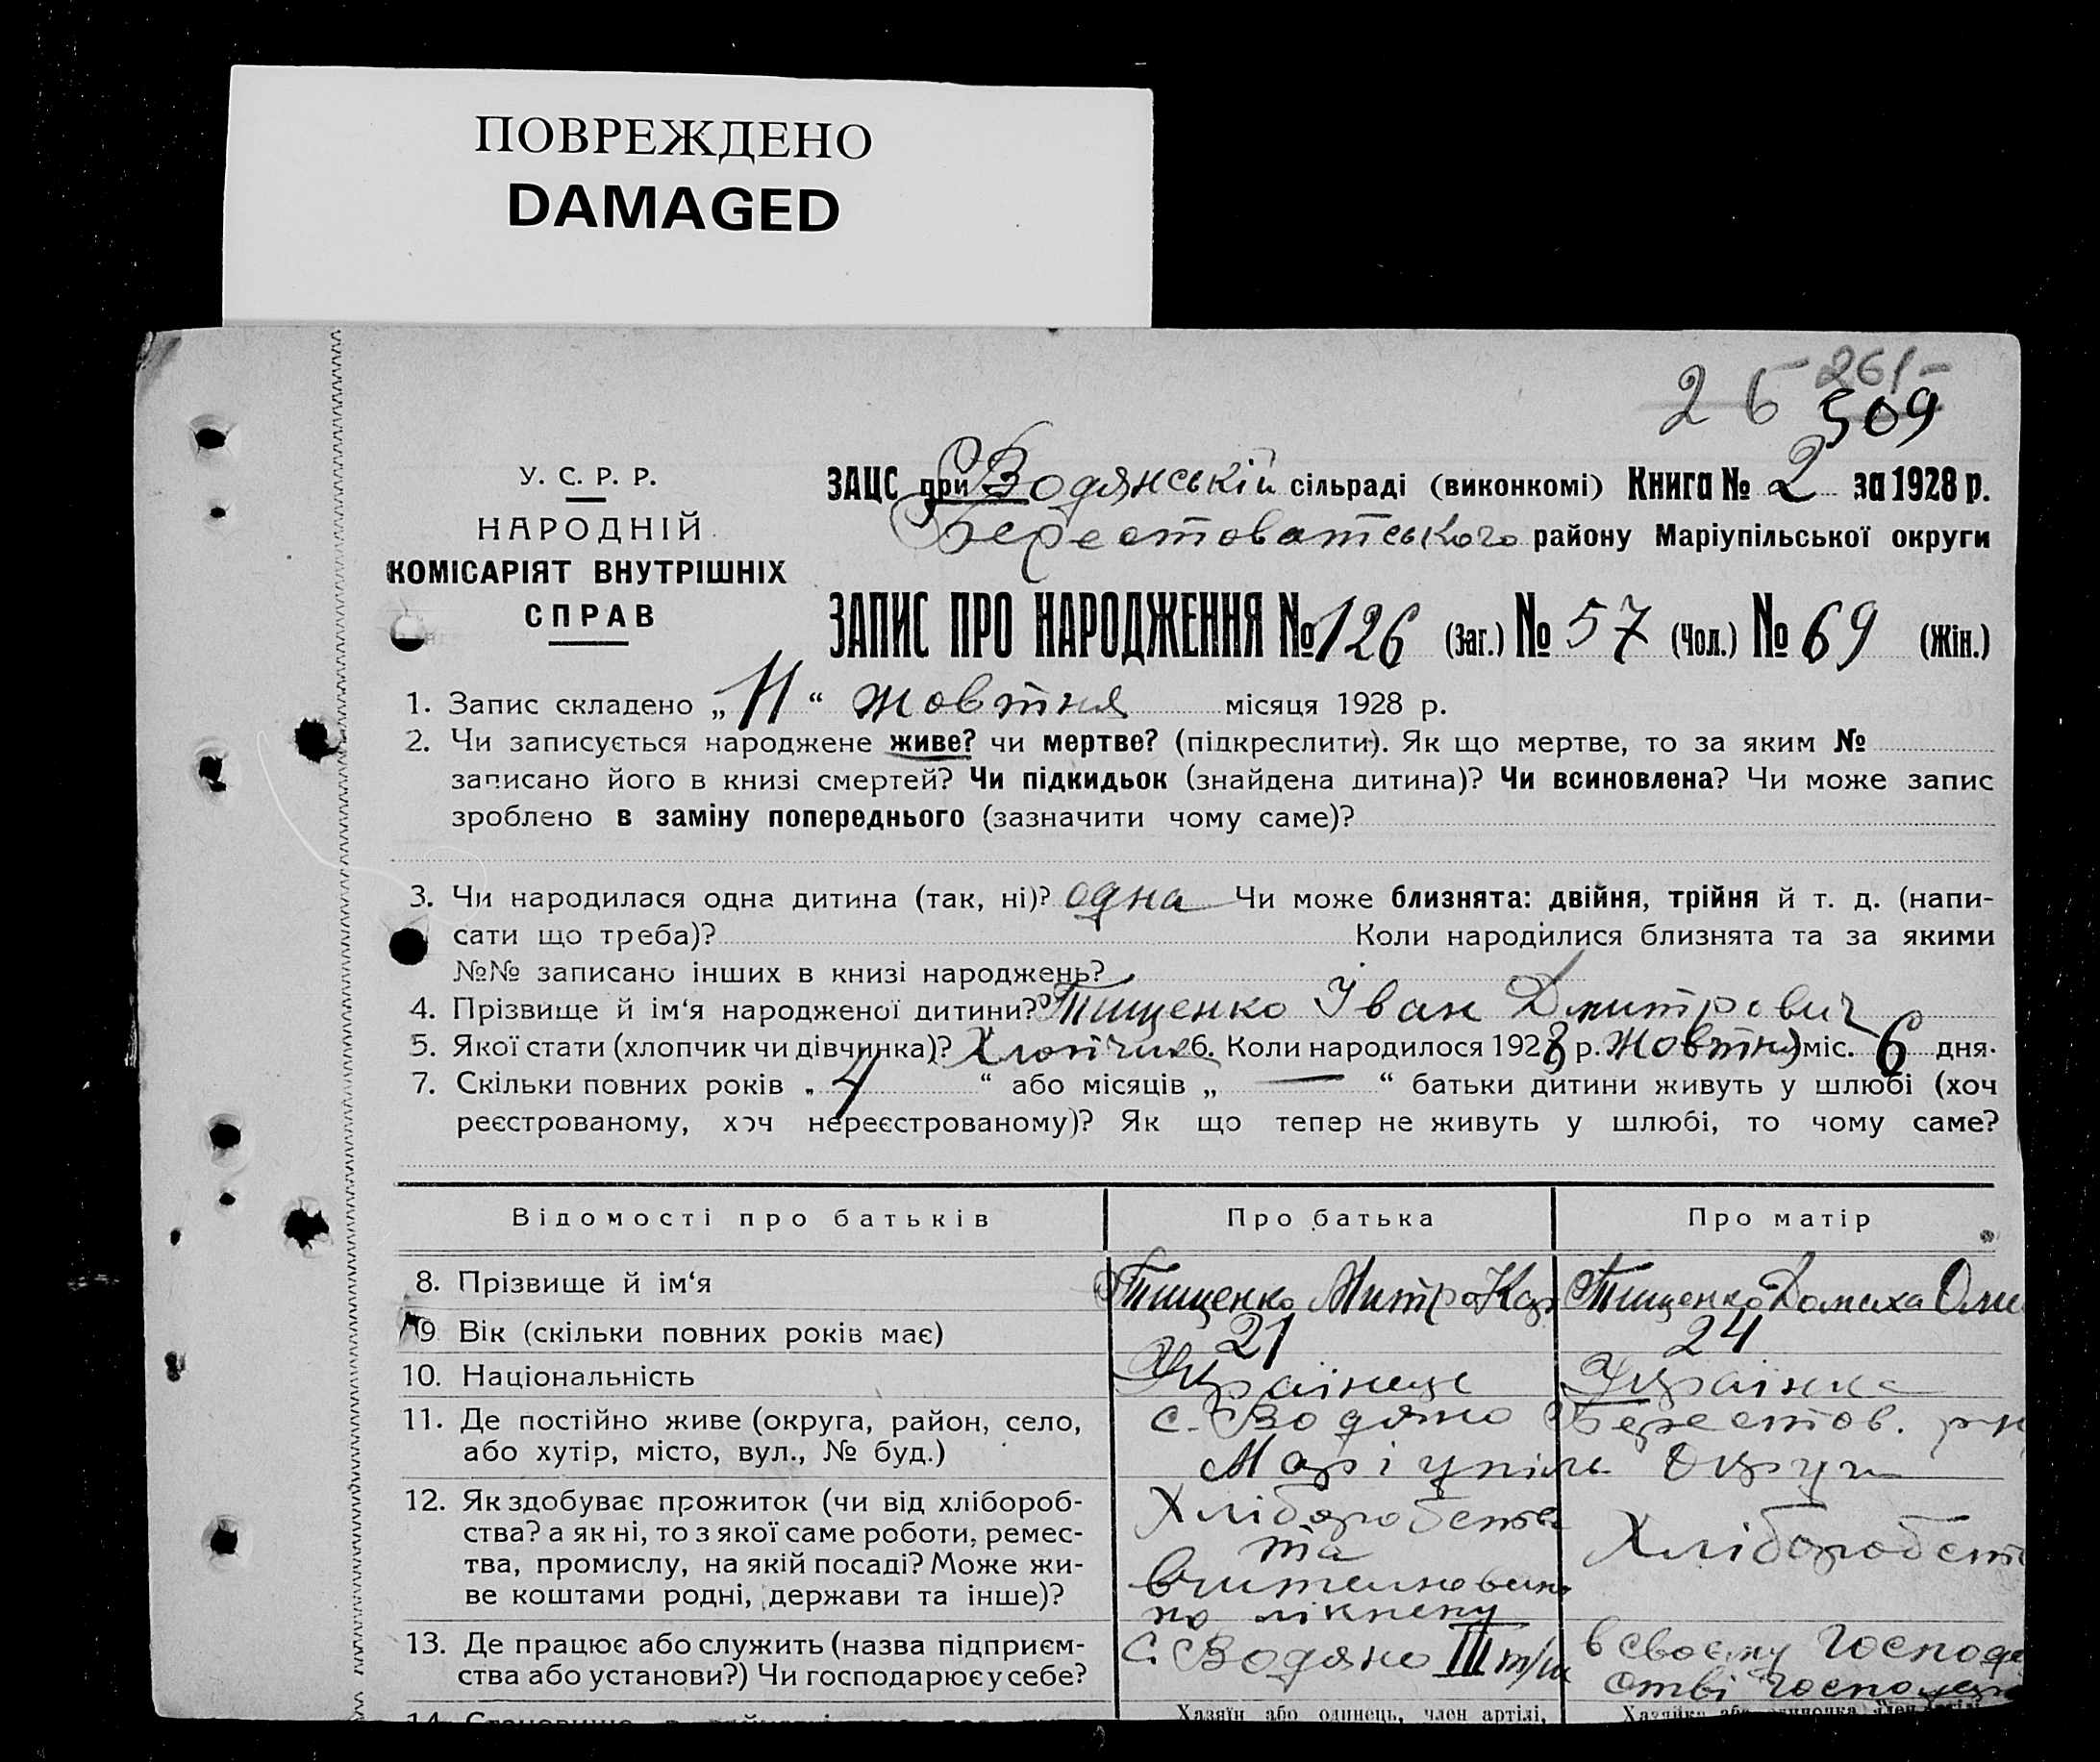 ПОВРЕЖДЕНО
DAMAGED
261-
26 509
У. С. Р. Р.
НАРОДНІЙ
КОМІСАРІЯТ ВНУТРІШНІХ
СПРАВ
ЗАЦС при Водянській сільраді (виконкомі) Книга № 2 за 1928 р.
Берестоватського району Маріупільської округи
ЗАПИС ПРО НАРОДЖЕННЯ № 126 (Заг.) № 57 (Чол.) № 69 (Жін.)
1. Запис складено „11“ жовтня місяця 1928 р.
2. Чи записується народжене живе? чи мертве? (підкреслити). Як що мертве, то за яким №
записано його в книзі смертей? Чи підкидьок (знайдена дитина)? Чи всиновлена? Чи може запис
зроблено в заміну попереднього (зазначити чому саме)?
3. Чи народилася одна дитина (так, ні)? одна Чи може близнята: двійня, трійня й т. д. (напи-
сати що треба)? Коли народилися близнята та за якими
№№ записано інших в книзі народжень?
4. Прізвище й ім‘я народженої дитини? Тищенко Іван Дмитрович
5. Якої стати (хлопчик чи дівчинка)? Хлопчик 6. Коли народилося 1928 р. Жовтня міс. 6 дня.
7. Скільки повних років „ 4 “ або місяців „ — “ батьки дитини живуть у шлюбі (хоч
реєстрованому, хоч нереєстрованому)? Як що тепер не живуть у шлюбі, то чому саме?
Відомості про батьків Про батька Про матір
8. Прізвище й ім‘я Тищенко Митро Кар Тищенко Домаха Оме
9 Вік (скільки повних років має) 21 24
10. Національність Українець Українка
11. Де постійно живе (округа, район, село, с. Водяно Берестов. р-н
або хутір, місто, вул., № буд.) Маріупіль Округи
12. Як здобуває прожиток (чи від хлібороб-
ства? а як ні, то з якої саме роботи, ремес-
тва, промислу, на якій посаді? Може жи-
ве коштами родні, держави та інше)?
Хліборобства
та
по лікнепу
Хліборобст
13. Де працює або служить (назва підприєм-
ства або установи?) Чи господарює у себе?
С. Водяно III т/ш
в своєму господа
стві
Хазяїн або одинець, член артілі,